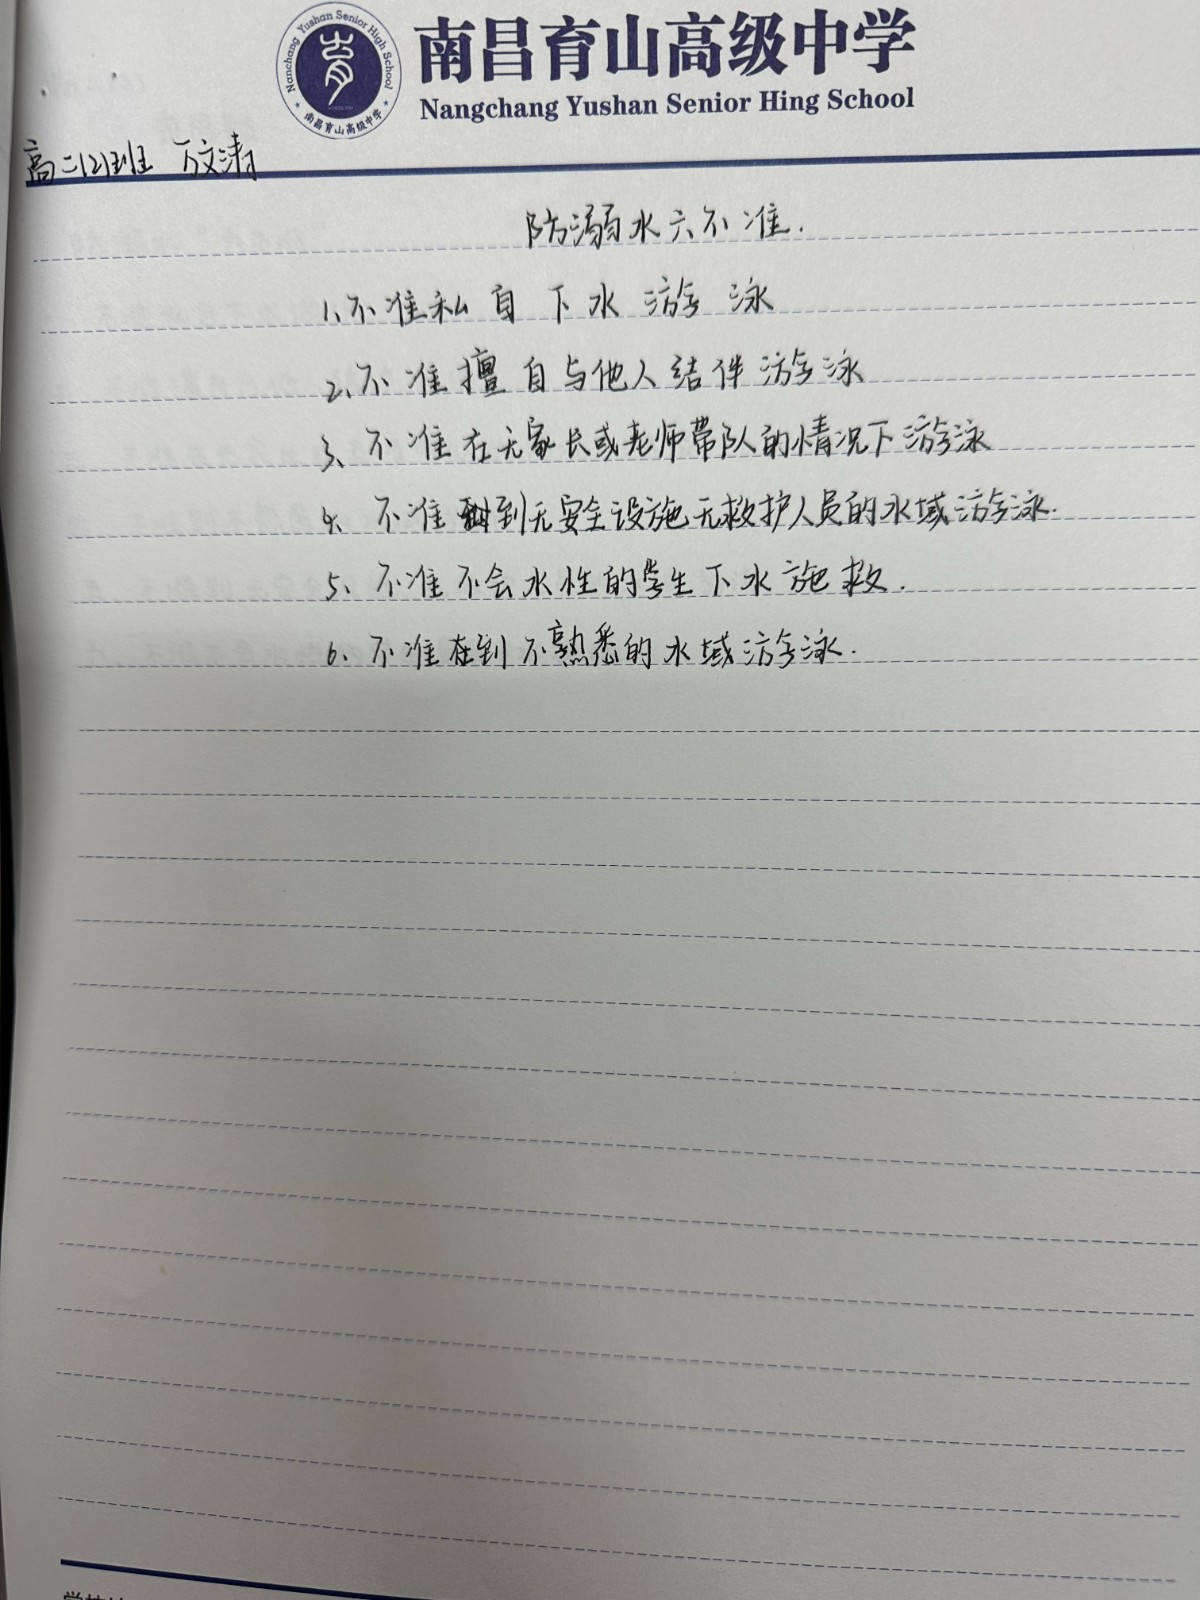 南昌育山高级中学
Nanchang Yushan Senior High School
南昌育山高级中学
Nangchang Yushan Senior Hing School
高二(2)班 万文涛
防溺水六不准.
1、不准私自下水游泳
2、不准擅自与他人结伴游泳
3、不准在无家长或老师带队的情况下游泳
4、不准到无安全设施无救护人员的水域游泳.
5、不准不会水性的学生下水施救.
6、不准到不熟悉的水域游泳.